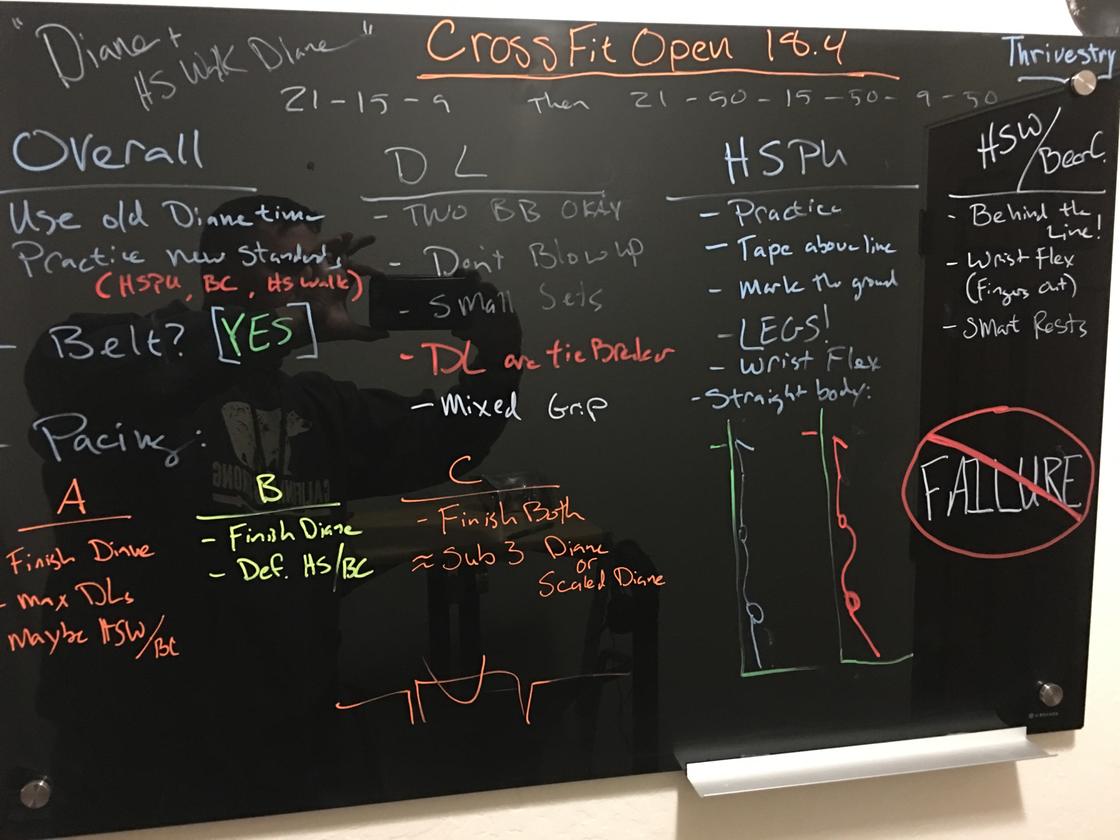 "Diane +
HS Walk Diane"
CrossFit Open 18.4
Thrivestry
21-15-9 Then 21-50-15-50-9-50
Overall
Use old Diane time
Practice new standards
(HSPU, BC, HS Walk)
- Belt? [YES]
- Pacing:
A
Finish Diane
- max DLs
Maybe HSW/BC
B
- Finish Diane
- Def. HS/BC
C
- Finish Both
≈ Sub 3 Diane
or
Scaled Diane
DL
- TWO BB OKAY
- Don't Blow up
- Small Sets
- DL are tie Breaker
- Mixed Grip
HSPU
- Practice
- Tape above line
- Mark the ground
- LEGS!
- Wrist Flex
- Straight body:
HSW/BearC.
- Behind the
Line!
- Wrist Flex
(Fingers out)
- Smart Rests
FAILURE